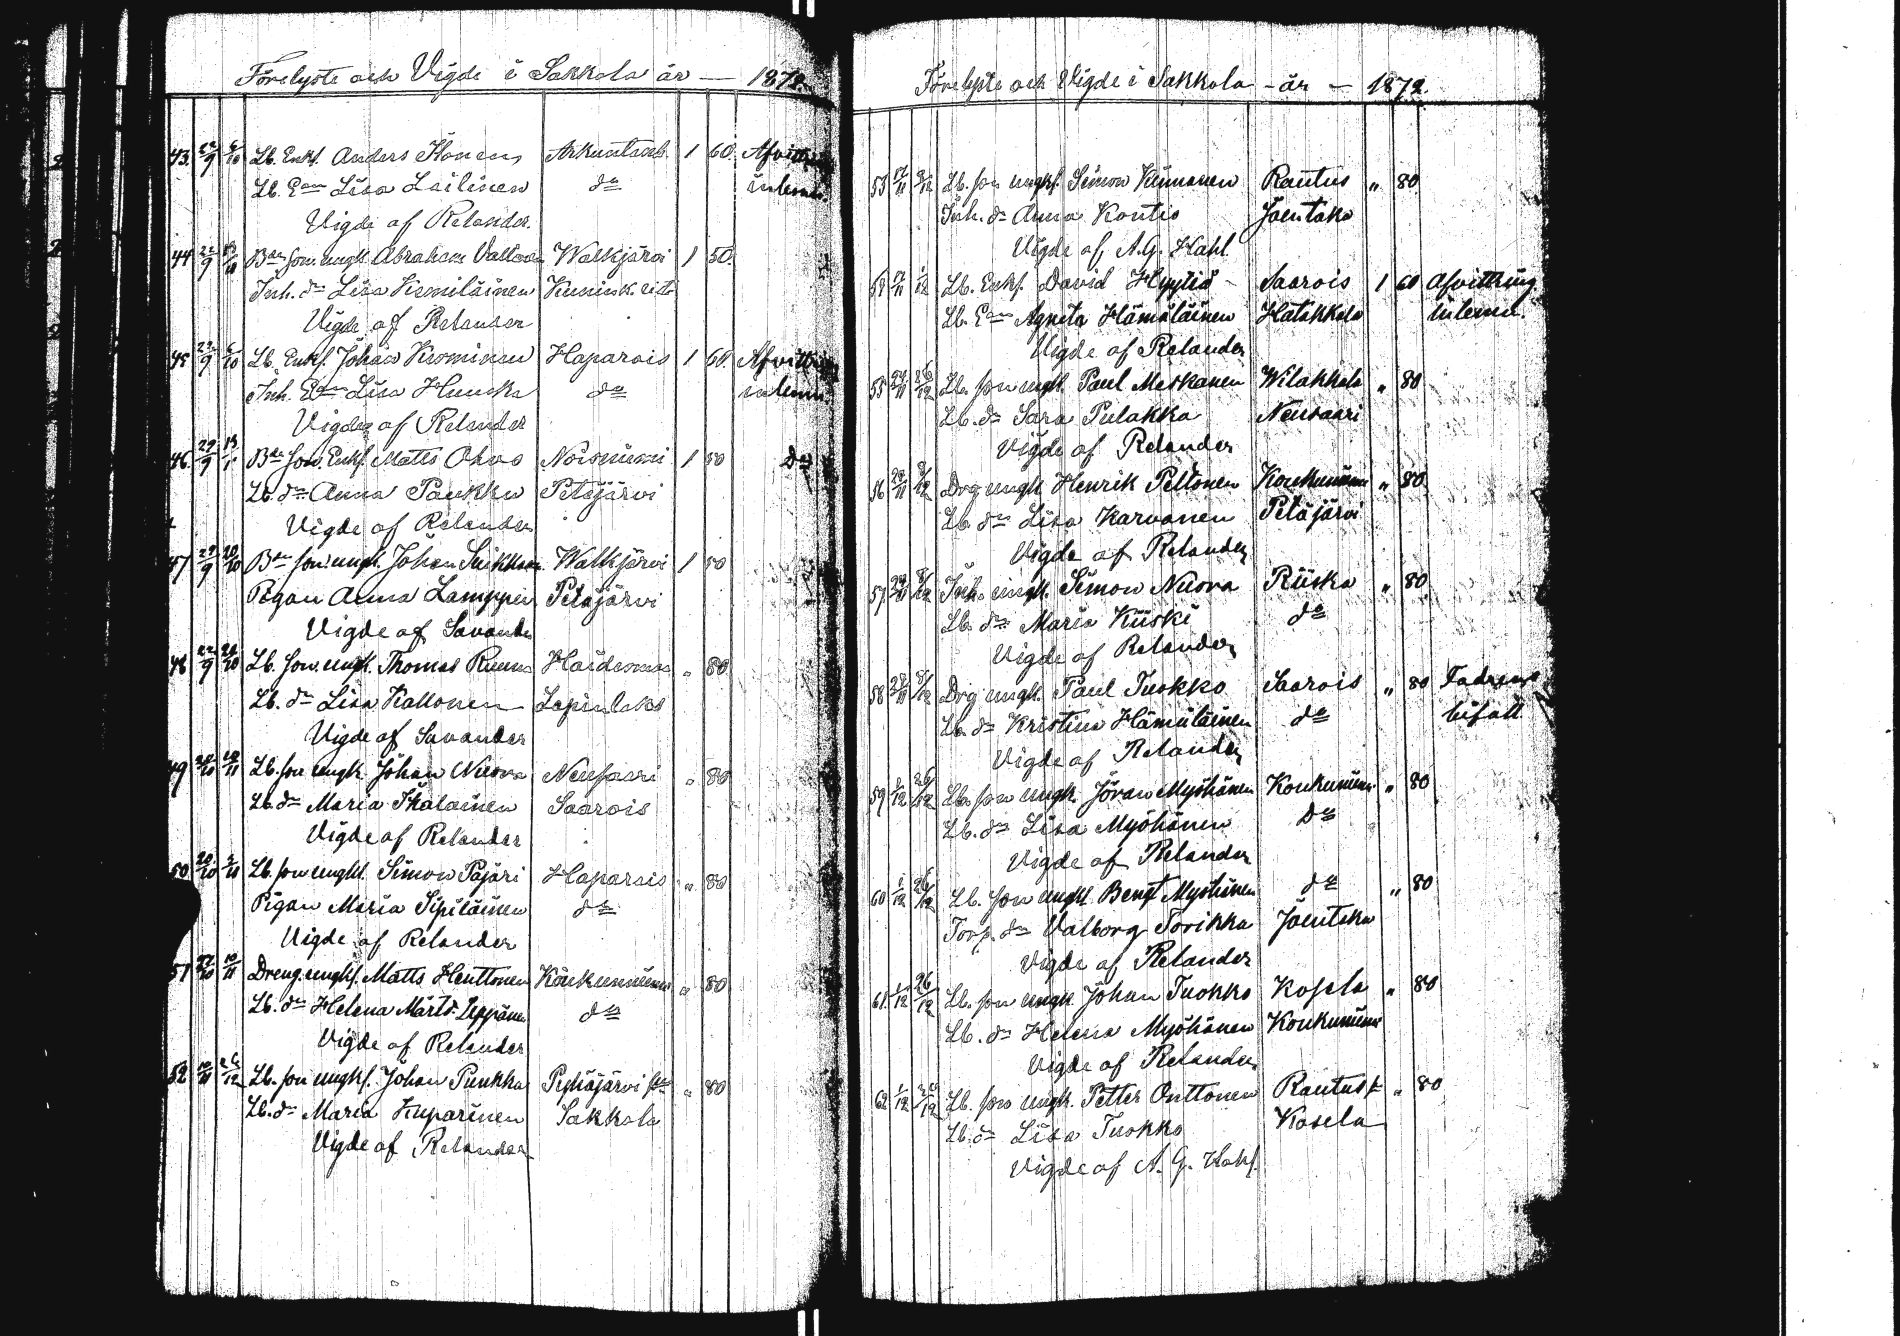 Förelyste och Vigde i Sakkola år — 1872.
43. 22/9 6/10 Lb. Enkl. Anders Ihonen Arkuntanh. 1 60. Afvittring
Lb. Ean Lisa Loilinen do inlemn.
Vigde af Relander.
44 22/9 13/10 Bde son. ungk. Abraham Valtonen Walkjärvi 1 50.
Inh. dr Lisa Kemiläinen Kunink. risti
Vigde af Relander
45 22/9 6/10 Lb. Enkl. Johan Krominen Haparois 1 60. Afvittring
Inh. Ean Lisa Huuska do inlemn.
Vigde af Relander
46. 29/9 13/10 Bde son. Enkl. Matts Ohvo Noisniemi 1 50 Do
Lb. dr Anna Paukku Petäjärvi
Vigde af Relander
47 29/9 20/10 Bde son. ungk. Johan Suikkanen Walkjärvi 1 50
Pigan Anna Lamppu Petäjärvi
Vigde af Savander
48 22/9 Lb. son. ungk. Thomas Ruuna " 80
Lb. dr Lisa Kallonen Lapinlaks
Vigde af Savander
49 Lb. son ungk. Johan Nuora Neusaari " 80
Lb. dr Maria Ikäläinen Saarois
Vigde af Relander
50 20/10 Lb. son ungkl. Simon Pajari Haparois " 80
Pigan Maria Sipiläinen do
Vigde af Relander
51 27/10 10/11 Dreng. ungkl. Matts Henttonen Koukunniemi " 80
Lb. dr Helena Märtsdr Leppänen do
Vigde af Relander
52 10/11 26/12 Lb. son ungkl. Johan Punkka Pyhäjärvi " 80
Lb. dr Maria Kuparinen Sakkola
Vigde af Relander
Förelyste och Vigde i Sakkola - år — 1872.
53 17/11 Lb. son ungkl. Simon Kinnunen Rautus " 80
Inh. dr Anna Kontio Jäentaka
Vigde af A. G. Hahl
54 17/11 1/12 Lb. Enkl. David Hyytiä - Saarois 1 60 Afvittring
Lb. Ean Agneta Hämäläinen Hatakkala inlemn.
Vigde af Relander
55 24/11 26/12 Lb. son ungk. Paul Meskanen Wilakkala " 80
Lb. dr Sara Pulakka Neusaari
Vigde af Relander
56 Drg ungk. Henrik Peltonen Koukunniemi " 80
Lb. dr Lisa Karvonen Petäjärvi
Vigde af Relander
57 Inh. ungk. Simon Nuora Riiska " 80
Lb. dr Maria Kiiski do
Vigde af Relander
58 Drg ungk. Paul Tuokko Saarois " 80 Fadrens
Lb. dr Kristina Hämäläinen do bifall
Vigde af Relander
59 1/12 26/12 Lb. son ungk. Jöran Myöhänen Koukunniemi " 80
Lb. dr Lisa Myöhänen Do
Vigde af Relander
60 1/12 26/12 Lb. son ungkl. Bengt Myöhänen do " 80
Torp. dr Valborg Torikka Jäentaka
Vigde af Relander
61. 1/12 26/12 Lb. son ungk. Johan Tuokko Kosela " 80
Lb. dr Helena Myöhänen Koukunniemi
Vigde af Relander
62 1/12 Lb. son ungk. Petter Onttonen Rautus " 80
Lb. dr Lisa Tuokko Kosela
Vigde af A. G. Hahl.